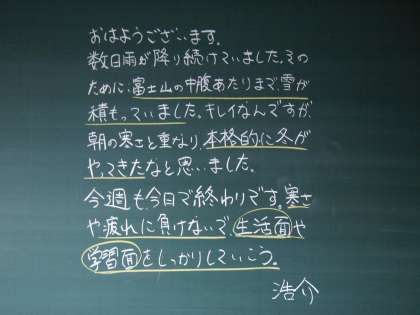 おはようございます。
数日雨が降り続けていました。その
ために、富士山の中腹あたりまで、雪が
積もっていました。キレイなんですが、
朝の寒さと重なり、本格的に冬が
やってきたなと思いました。
今週も今日で終わりです。寒さ
や疲れに負けないで、生活面や
学習面をしっかりしていこう。
浩介